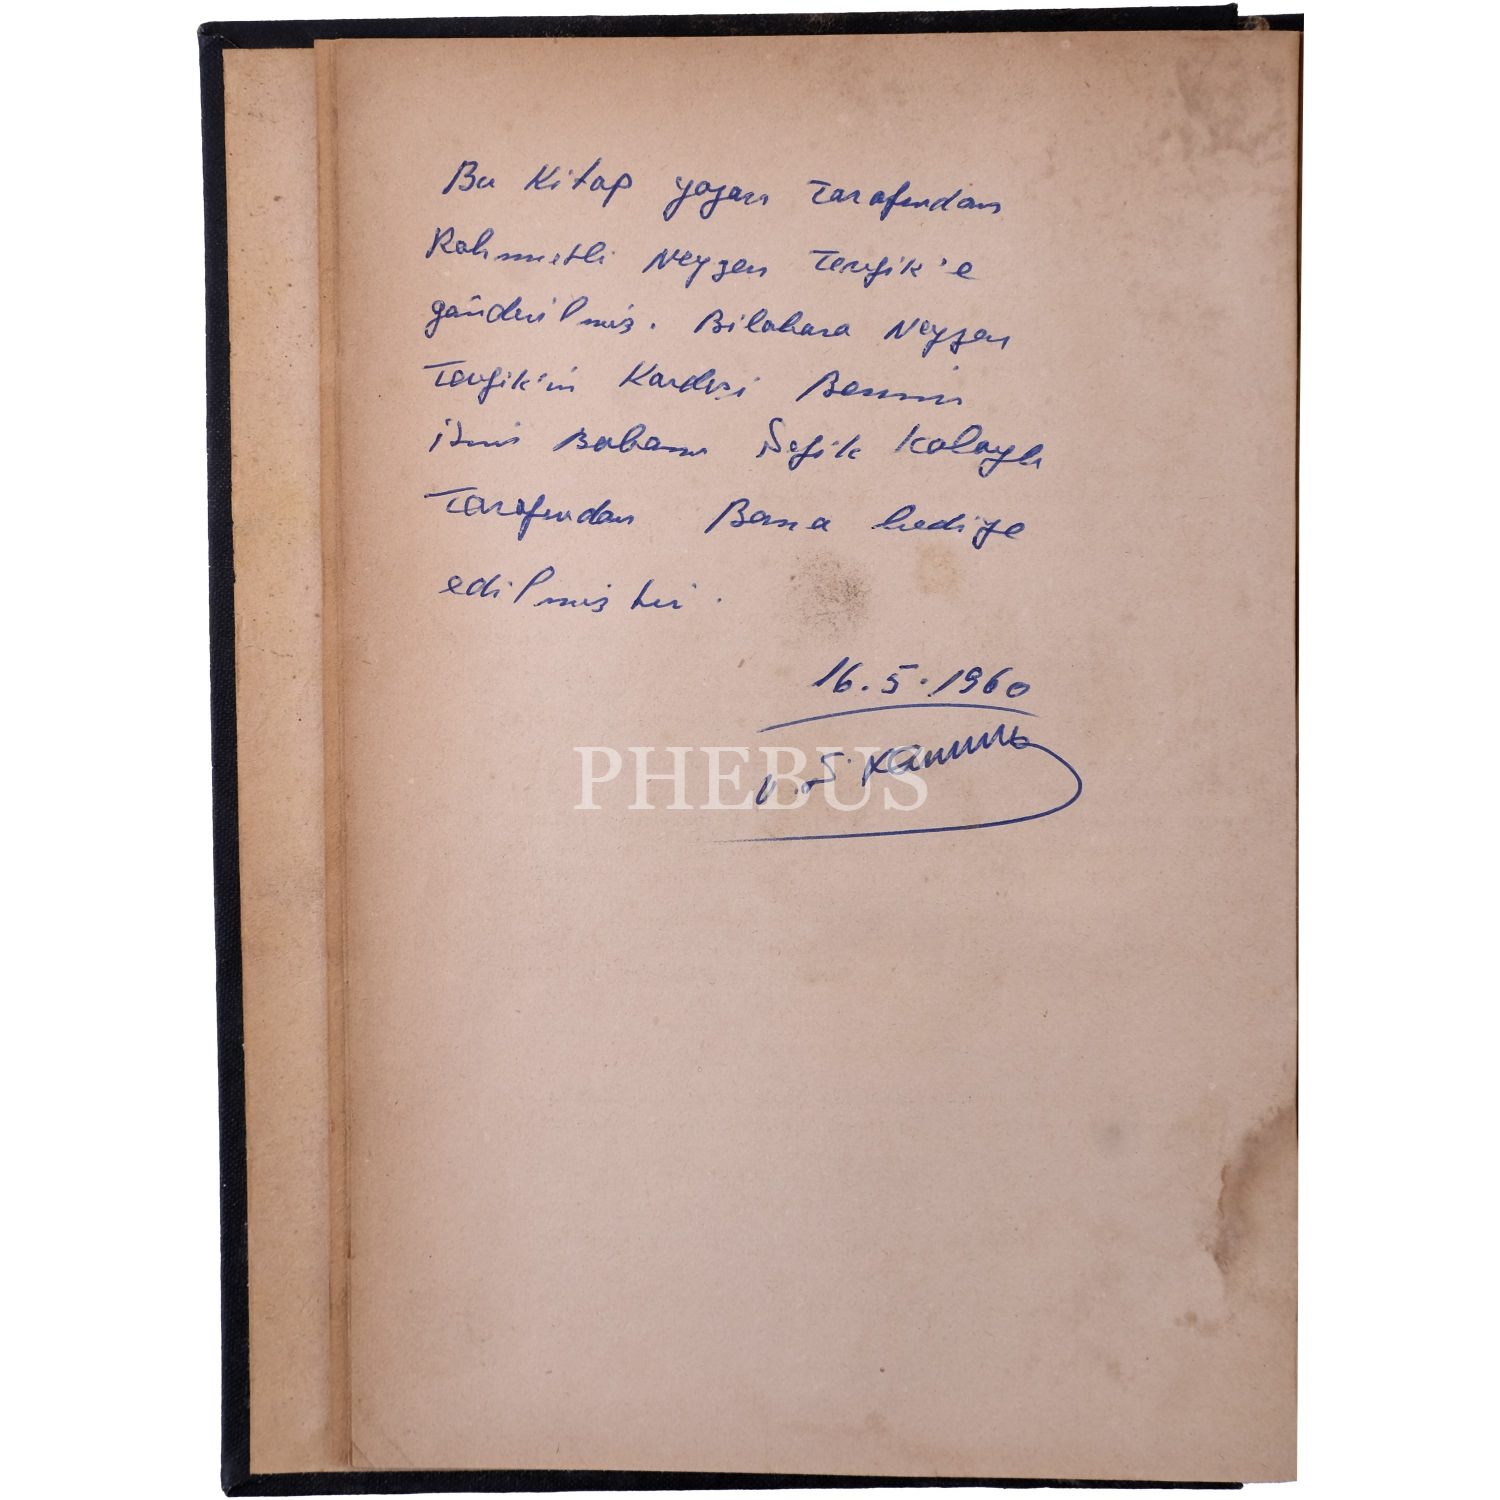 Bu Kitap yazarı Tarafından
Rahmetli Neyzen Tevfik'e
gönderilmiş. Bilahara Neyzen
Tevfik'in Kardeşi Benim
Babam Şefik Kolaylı
Tarafından Bana hediye
edilmiştir.
16.5.1960
PHEBUS